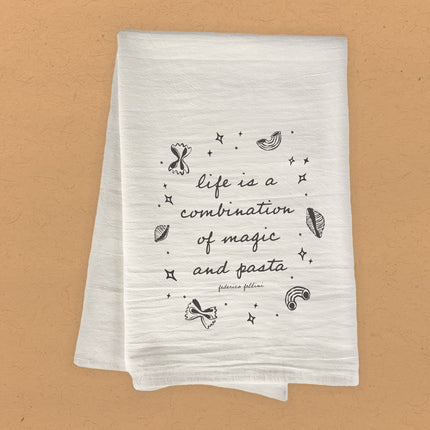 life is a
combination
of magic
and pasta
federico fellini